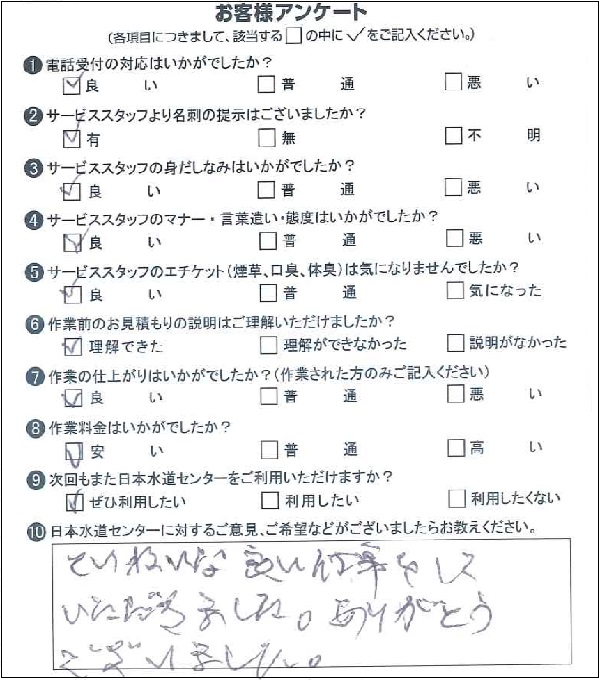 お客様アンケート
(各項目につきまして、該当する□の中に✓をご記入ください。)
❶電話受付の対応はいかがでしたか?
☑良い □普通 □悪い
❷サービススタッフより名刺の提示はございましたか?
☑有 □無 □不明
❸サービススタッフの身だしなみはいかがでしたか?
☑良い □普通 □悪い
❹サービススタッフのマナー・言葉遣い・態度はいかがでしたか?
☑良い □普通 □悪い
❺サービススタッフのエチケット(煙草、口臭、体臭)は気になりませんでしたか?
☑良い □普通 □気になった
❻作業前のお見積もりの説明はご理解いただけましたか?
☑理解できた □理解ができなかった □説明がなかった
❼作業の仕上がりはいかがでしたか?(作業された方のみご記入ください)
☑良い □普通 □悪い
❽作業料金はいかがでしたか?
☑安い □普通 □高い
❾次回もまた日本水道センターをご利用いただけますか?
☑ぜひ利用したい □利用したい □利用したくない
❿日本水道センターに対するご意見、ご希望などがございましたらお教えください。
ていねいな良い仕事をして
いただきました。ありがとう
ございました。